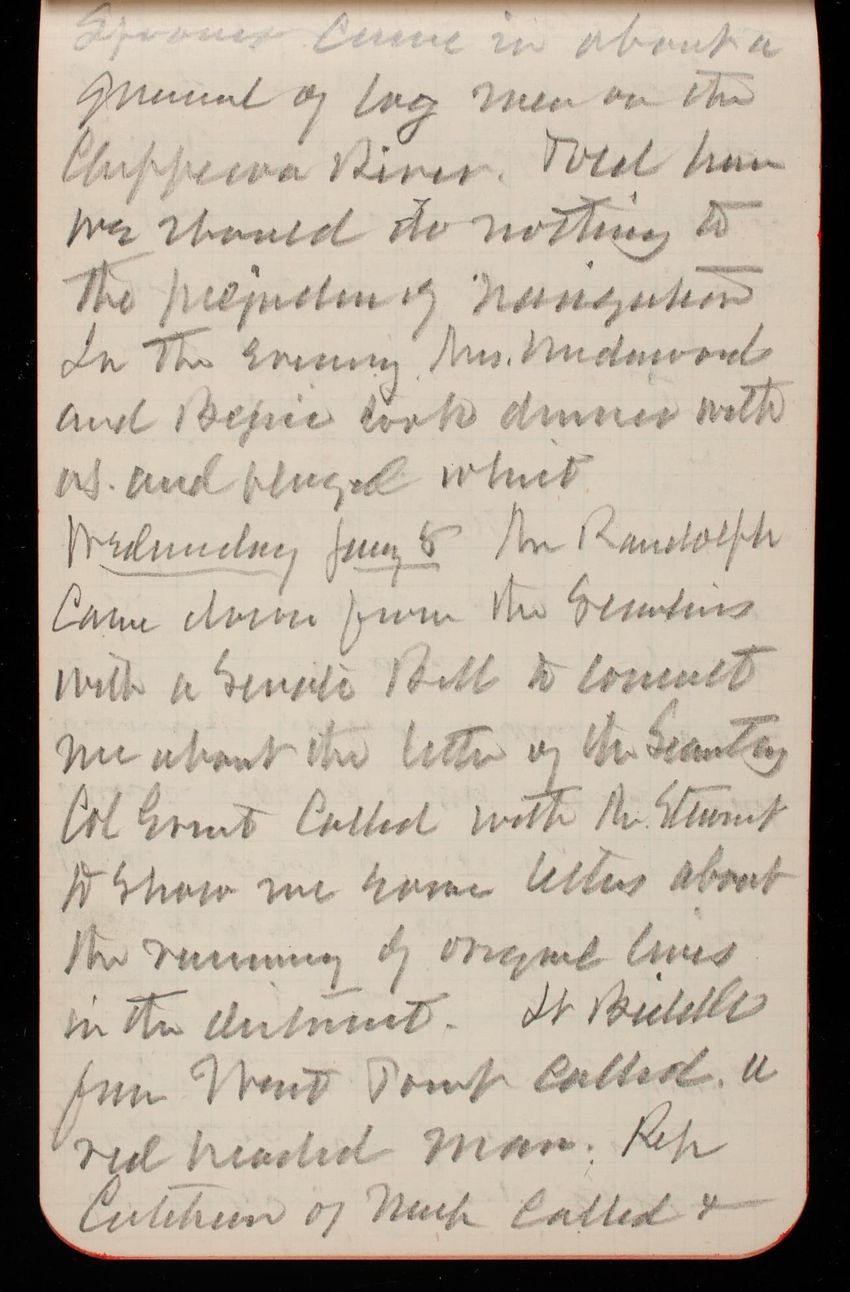 came in about a
of log men on the
Chippewa River. Told him
we should do nothing to
the prejudice of navigation
In the evening Mrs. Underwood
and Bessie took dinner with
us. and played whist
Wednesday Jany 8 Mr Randolph
Came down from the Secretarys
with a Senate Bill to consult
me about the letter of the Secretary
Col Ernst Called with Mr. Stewart
to show me some letters about
the running of original lines
in the district. Lt Biddle
from West Point called. a
red headed man. Rep
Cutcheon of Mich Called &